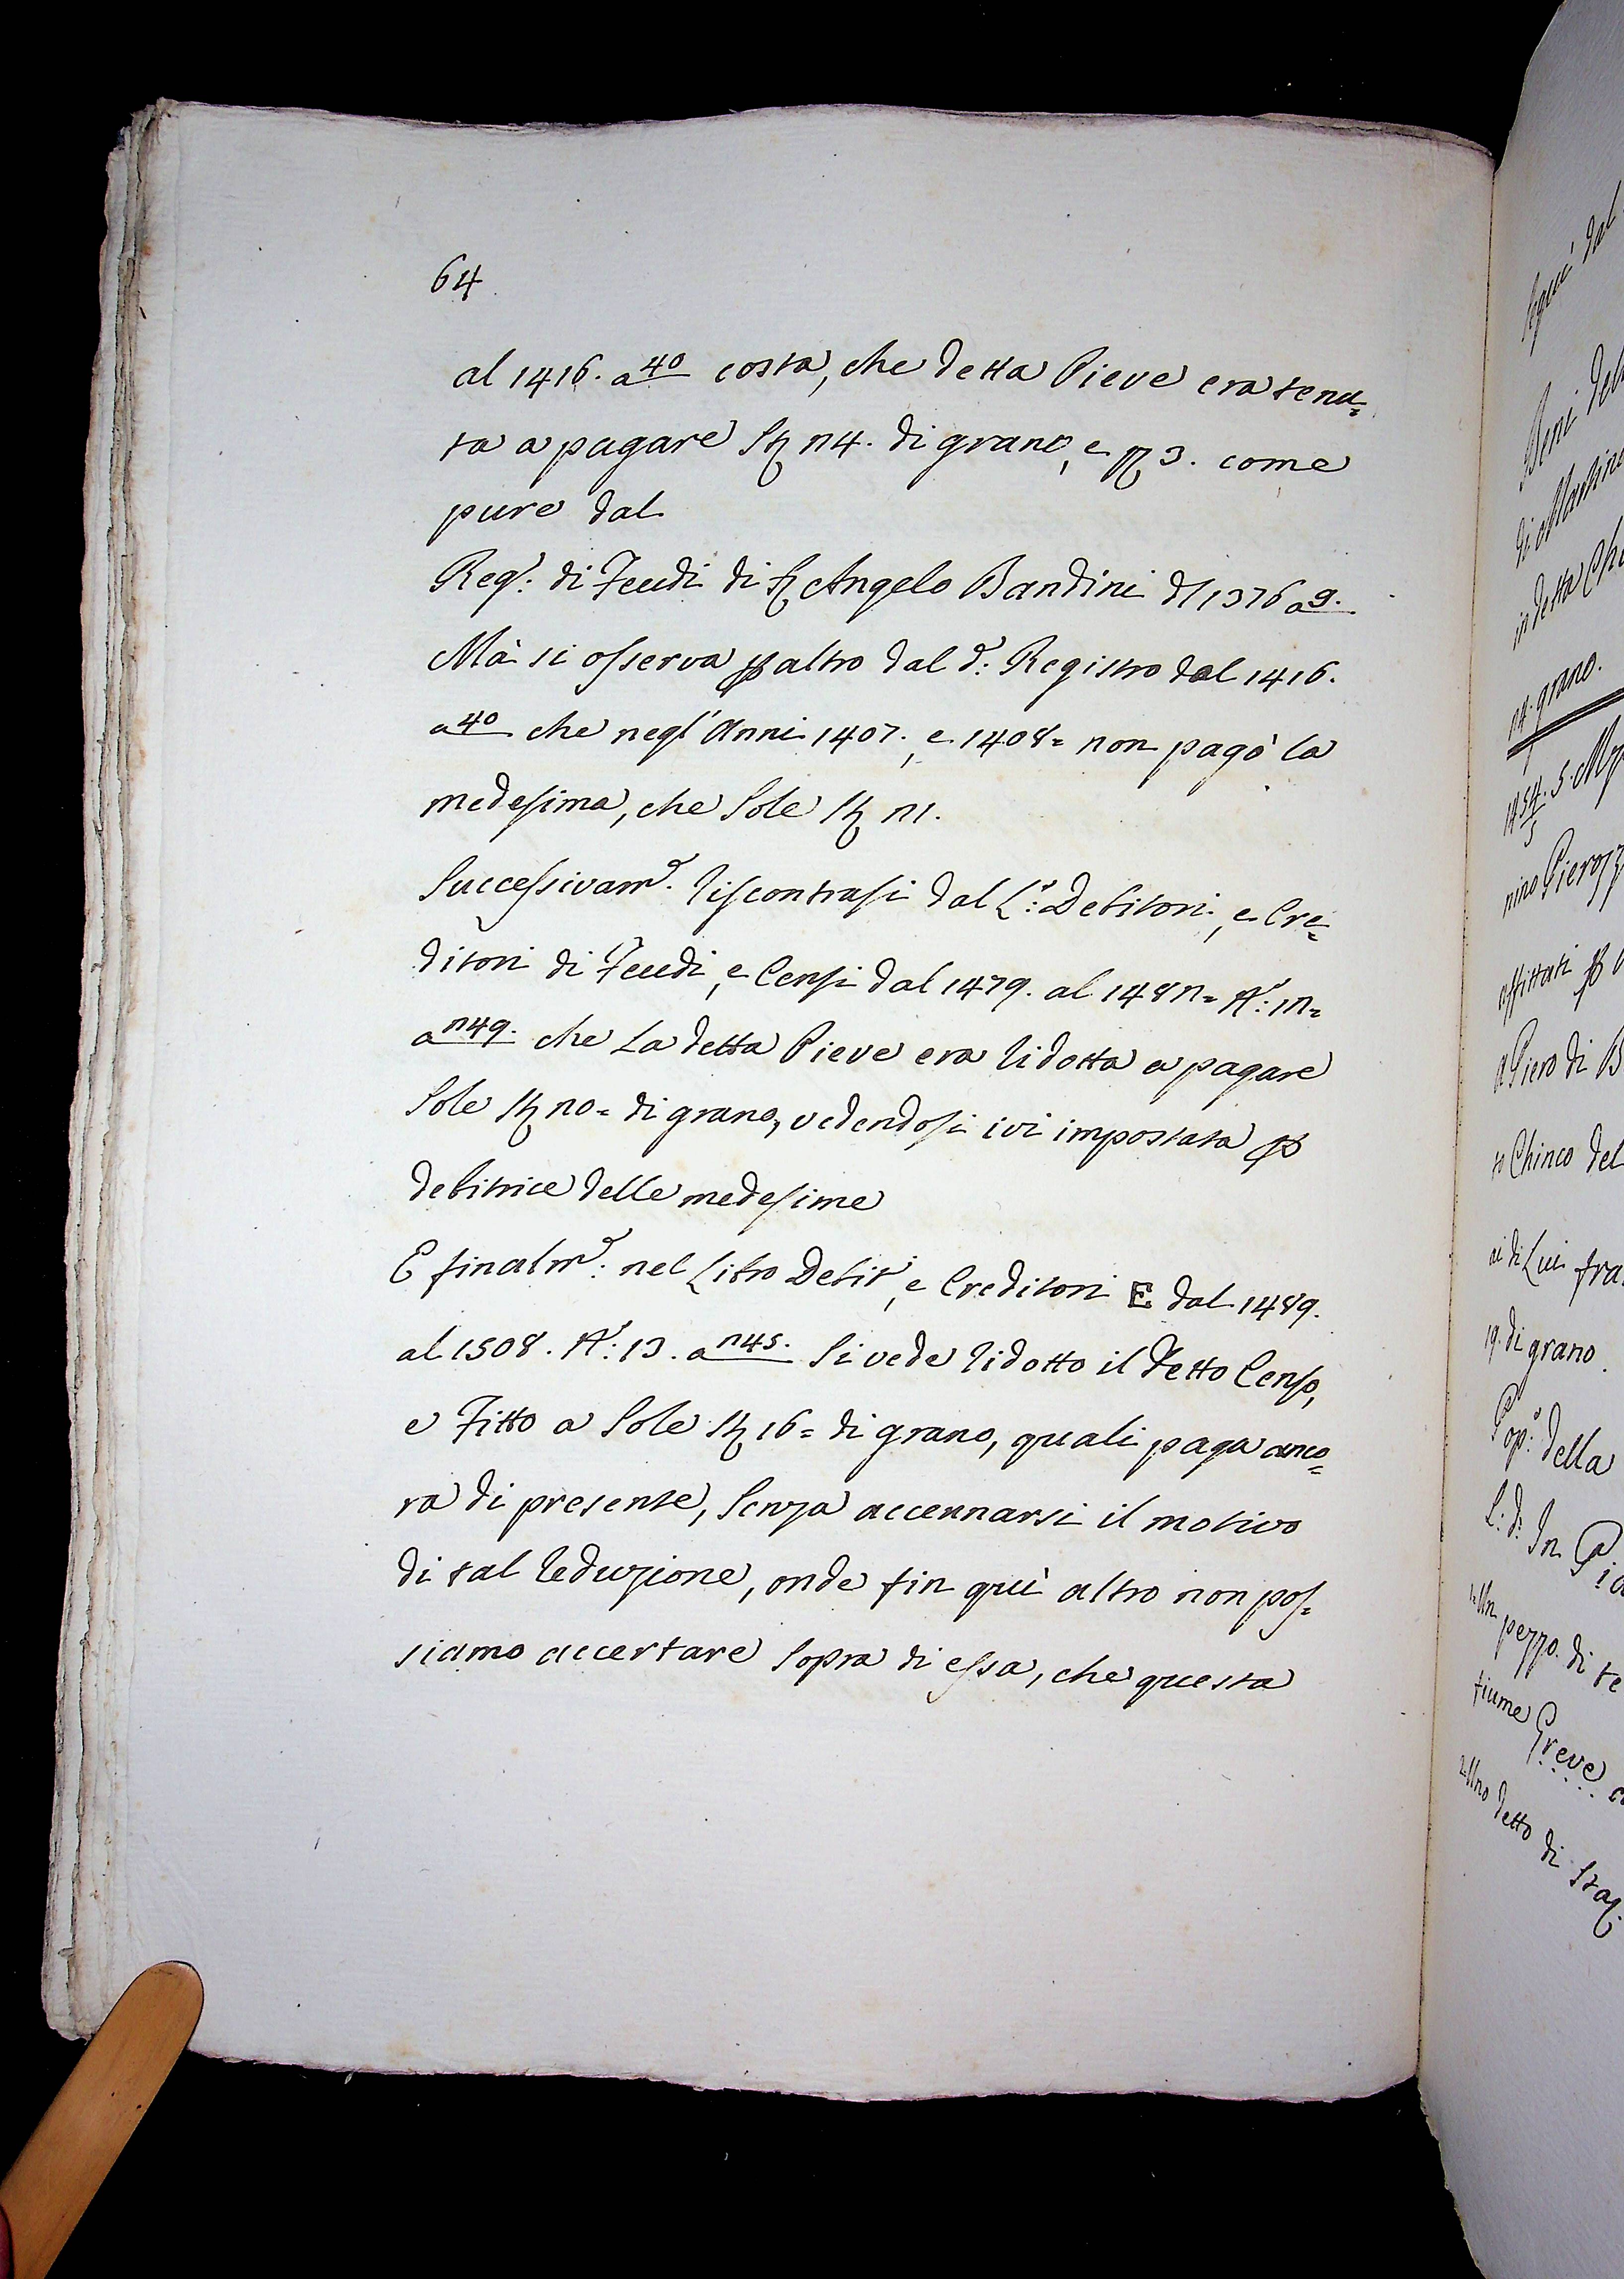 64
al 1416. a 40 costa, che detta Pieve era tenu=
ta a pagare St. 24. di grano, e q. 3. come
pure dal
Reg.: di Feudi di S. Angelo Bandini dl 1376 a 9.
Mà si osserva p altro dal d.: Registro dal 1416.
a 40 che negl' Anni 1407., e 1408= non pagò la
medesima, che Sole St. 21.
Successivam.e riscontrasi dal L.o: Debitori, e Cre=
ditori di Feudi, e Censi dal 1479. al 1482= N.: 12=
a 249. che La detta Pieve era ridotta a pagare
Sole St. 20= di grano, vedendosi ivi impostata p
debitrice delle medesime
E finalm.e: nel Libro Debit.i, e Creditori E dal 1489.
al 1508. N.: 13. a 245. Si vede ridotto il detto Censo,
e Fitto a Sole St. 16= di grano, quali paga anco=
ra di presente, Senza accennarsi il motivo
di tal reduzione, onde fin quì altro non pos=
siamo accertare Sopra di essa, che questa
seguì dal
Beni del
di Martino
in detta Chi
24. grano.
nino Pierozz
affittati p
a Piero di B
to Chinco del
ai di Lui fra
19. di grano.
Pop.o: della
L: d: In Pia
1. Un pezzo di te
fiume Greve
2. Uno detto di Stag.